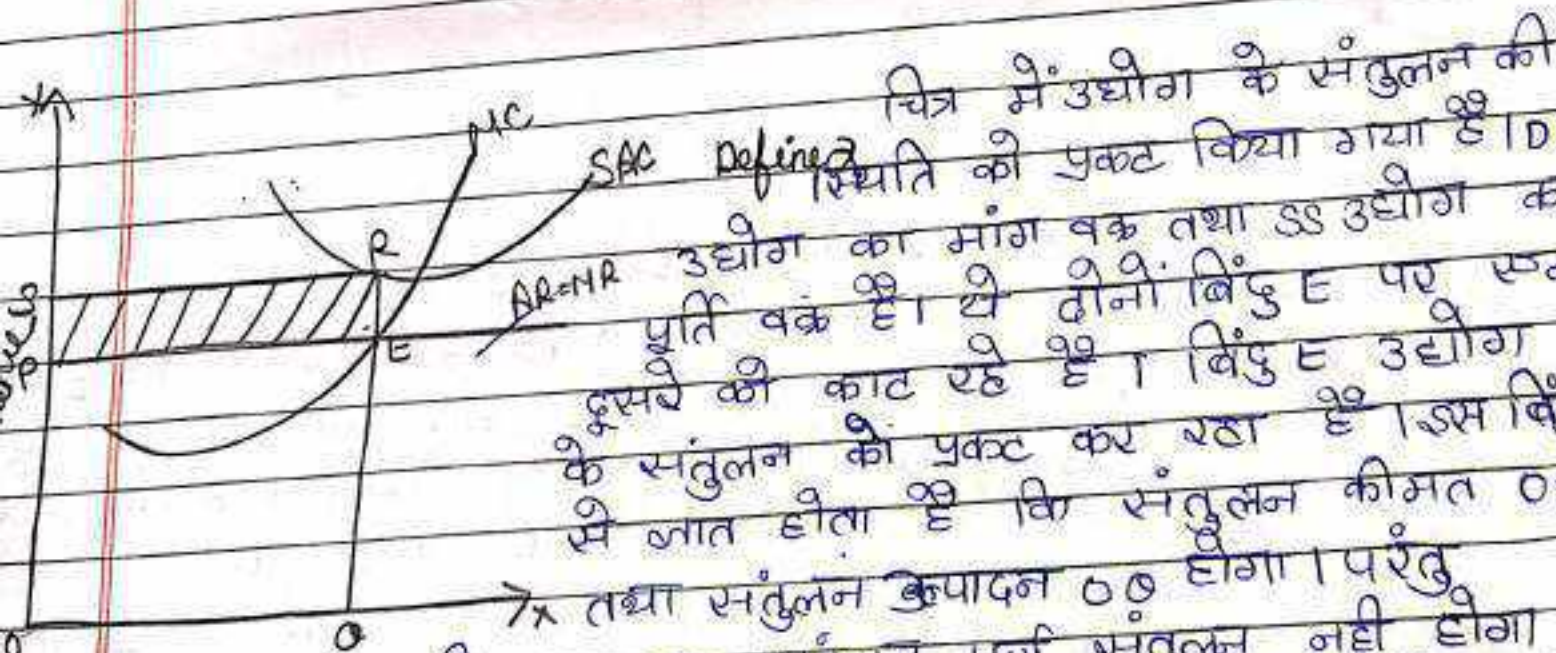 Y
MC
SAC
Define
R
S
P
AR=MR
E
O
Q
X
चित्र में उघोग के संतुलन की
स्थिति को प्रकट किया गया है। D
उघोग का मांग वक्र तथा SS उघोग
पूर्ति वक्र है। ये दोनों बिंदु E पर
दूसरे को काट रहे है। बिंदु E उघोग
के संतुलन को प्रकट कर रहा है। इस
से ज्ञात होता है कि संतुलन कीमत O
तथा संतुलन उत्पादन OQ होगा। परंतु
संतुलन नही होगा